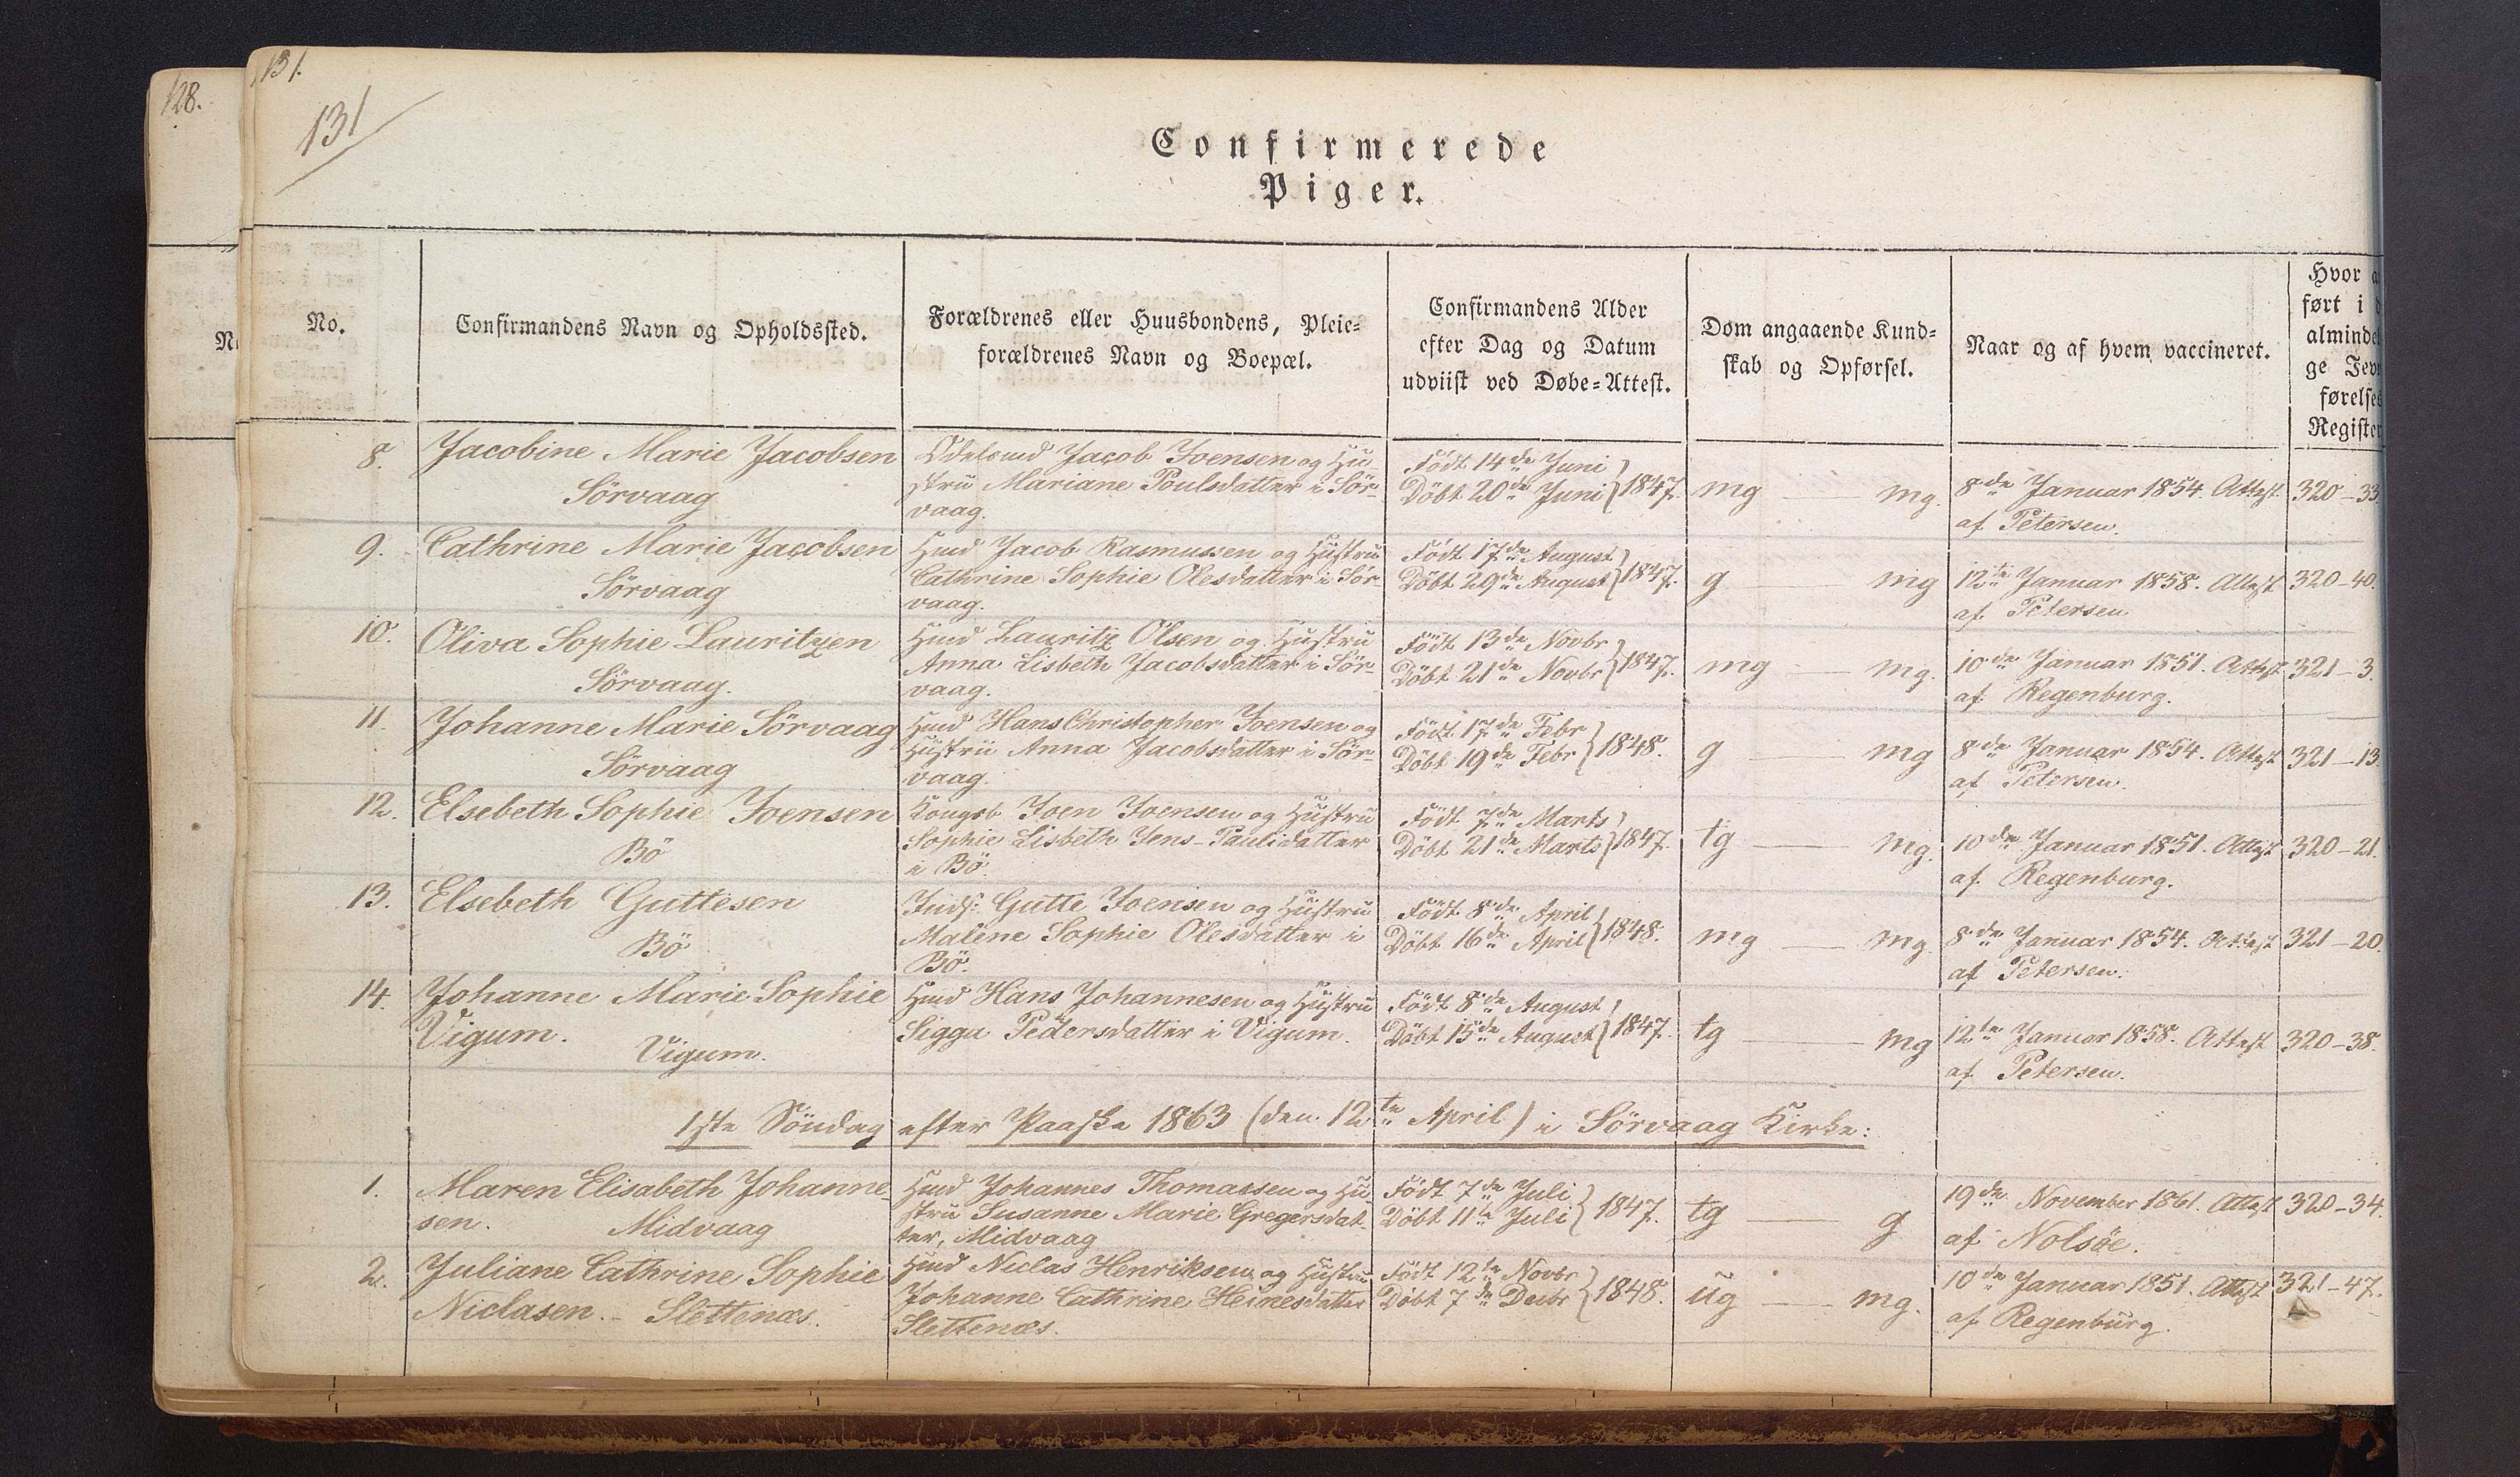 128.
131.
131
Confirmerede
Piger.
No.
Confirmandens Navn og Opholdssted.
Forældrenes eller Huusbondens, Pleie-
forældrenes Navn og Boepæl.
Confirmandens Alder
efter Dag og Datum
udviist ved Døbe-Attest.
Dom angaaende Kund-
skab og Opførsel.
Naar og af hvem vaccineret.
Hvor
ført i
almindel
ge Jevn
førelses
Register
8. Jacobine Marie Jacobsen
Sörvaag
Jacob Joensen og Hu-
stru Mariane Poulsdatter i Sör-
vaag.
Födt 14de Juni
Döbt 20de Juni } 1847.
mg — mg.
8de Januar 1854. Attest
af Petersen.
320-33
9. Cathrine Marie Jacobsen
Sörvaag
Hmd Jacob Rasmussen og Hustru
Cathrine Sophie Olesdatter i Sör-
vaag.
Födt 17de August
Döbt 29de August } 1847.
g — mg
12te Januar 1858. Attest
af Petersen
320-40.
10. Oliva Sophie Lauritzen
Sörvaag.
Hmd Lauritz Olsen og Hustru
Anna Lisbeth Jacobsdatter i Sör-
vaag.
Födt 13de Novbr
Döbt 21de Novbr } 1847.
mg — mg.
10de Januar 1851. Attest
af Regenburg.
321-3.
11. Johanne Marie Sörvaag
Sörvaag
Hmd Hans Christopher Joensen og
Hustru Anna Jacobsdatter i Sör-
vaag.
Födt 17de Febr
Döbt 19de Febr } 1848.
g — mg
8de Januar 1854. Attest
af Petersen.
321-13.
12. Elsebeth Sophie Joensen
Bö
Kongsb Joen Joensen og Hustru
Sophie Lisbeth Jens-Paulidatter
i Bö.
Födt 7de Marts
Döbt 21de Marts } 1847.
tg — mg.
10de Januar 1851. Attest
af Regenburg.
320-21.
13. Elsebeth Guttesen
Bö
Inds: Gutte Joensen og Hustru
Malene Sophie Olesdatter i
Bö.
Födt 8de April
Döbt 16de April } 1848.
mg — mg.
8de Januar 1854. Attest
af Petersen.
321-20.
14. Johanne Marie Sophie
Vigum.
Vigum.
Hmd Hans Johannesen og Hustru
Sigga Pedersdatter i Vigum.
Födt 8de August
Döbt 15de August } 1847.
tg — mg
12te Januar 1858. Attest
af Petersen.
320-38.
1ste Söndag efter Paaske 1863 (den 12te April) i Sörvaag Kirke:
1. Maren Elisabeth Johanne-
sen. Midvaag
Hmd Johannes Thomassen og Hu-
stru Susanne Marie Gregersdat-
ter, Midvaag
Födt 7de Juli
Döbt 11te Juli } 1847.
tg — g
19de November 1861. Attest
af Nolsöe.
320-34.
2. Juliane Cathrine Sophie
Niclasen. - Slettenæs.
Hmd Niclas Henriksen og Hustru
Johanne Cathrine Heinesdatter
Slettenæs.
Födt 12te Novbr
Döbt 7de Decbr } 1848.
ug — mg.
10de Januar 1851. Attest
af Regenburg.
321-47.